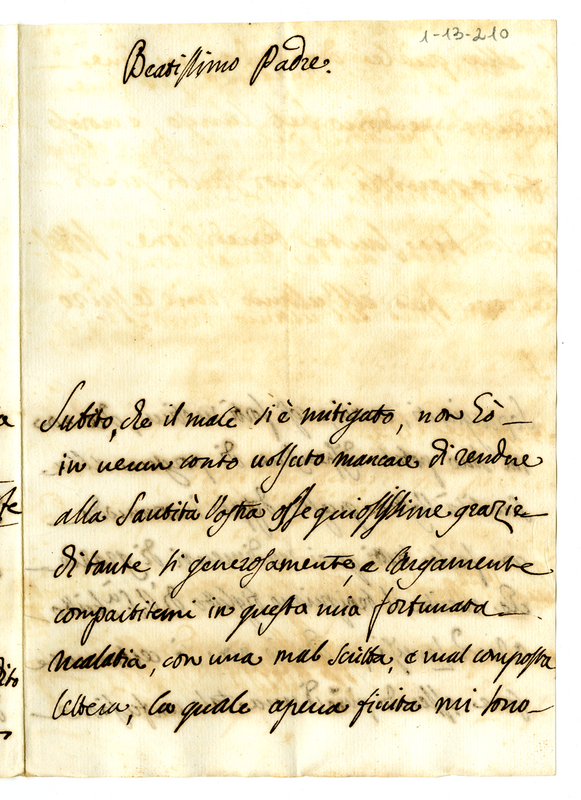 1-13-210
Beatissimo Padre.
Subito, che il male si è mitigato, non hò
in verun conto volsuto mancare di rendere
alla Santità Vostra ossequiosissime grazie
di tante sì generosamente, e largamente
compartitemi in questa mia fortunata
malatia, con una mal scritta, e mal composta
lettera, la quale apena finita mi sono